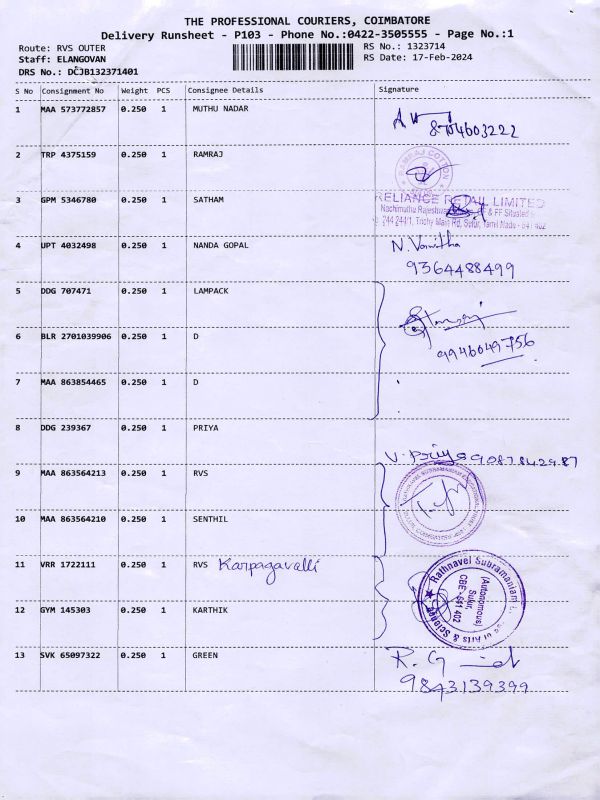 THE PROFESSIONAL COURIERS, COIMBATORE
Delivery Runsheet - P103 - Phone No.:0422-3505555 - Page No.:1
Route: RVS OUTER
RS No.: 1323714
Staff: ELANGOVAN
RS Date: 17-Feb-2024
DRS No.: DCJB132371401
S No Consignment No Weight PCS Consignee Details Signature
1 MAA 573772857 0.250 1 MUTHU NADAR
8704603222
2 TRP 4375159 0.250 1 RAMRAJ
RAMRAJ COTTON
3 GPM 5346780 0.250 1 SATHAM
RELIANCE RETAIL LIMITED
Nachimuthu Rajeshwari & FF Situated
244 244/1, Trichy Main Rd, Sulur, Tamil Nadu - 641 402
4 UPT 4032498 0.250 1 NANDA GOPAL N. Vanitha
9364488499
5 DDG 707471 0.250 1 LAMPACK
6 BLR 2701039906 0.250 1 D
9946049756
7 MAA 863854465 0.250 1 D
8 DDG 239367 0.250 1 PRIYA
V. Priya 9087842987
9 MAA 863564213 0.250 1 RVS
10 MAA 863564210 0.250 1 SENTHIL
11 VRR 1722111 0.250 1 RVS Karpagavalli
Rathnavel Subramaniam
of Arts & Science
(Autonomous)
Sulur,
CBE - 641 402
12 GYM 145303 0.250 1 KARTHIK
13 SVK 65097322 0.250 1 GREEN
9843139399